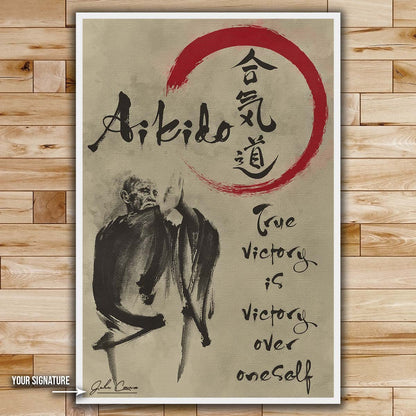 合
気
道
Aikido
True
victory
is
victory
over
oneself
YOUR SIGNATURE